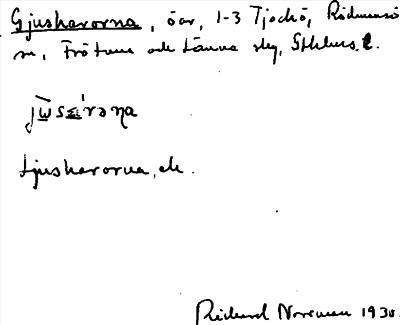 Gjusharorna, öar, 1-3 Tjockö, Rådmansö
sn, Frötuna och Länna slg, Sthlms l.
Ljusharorna, ek.
Rickard Norrman 1930.